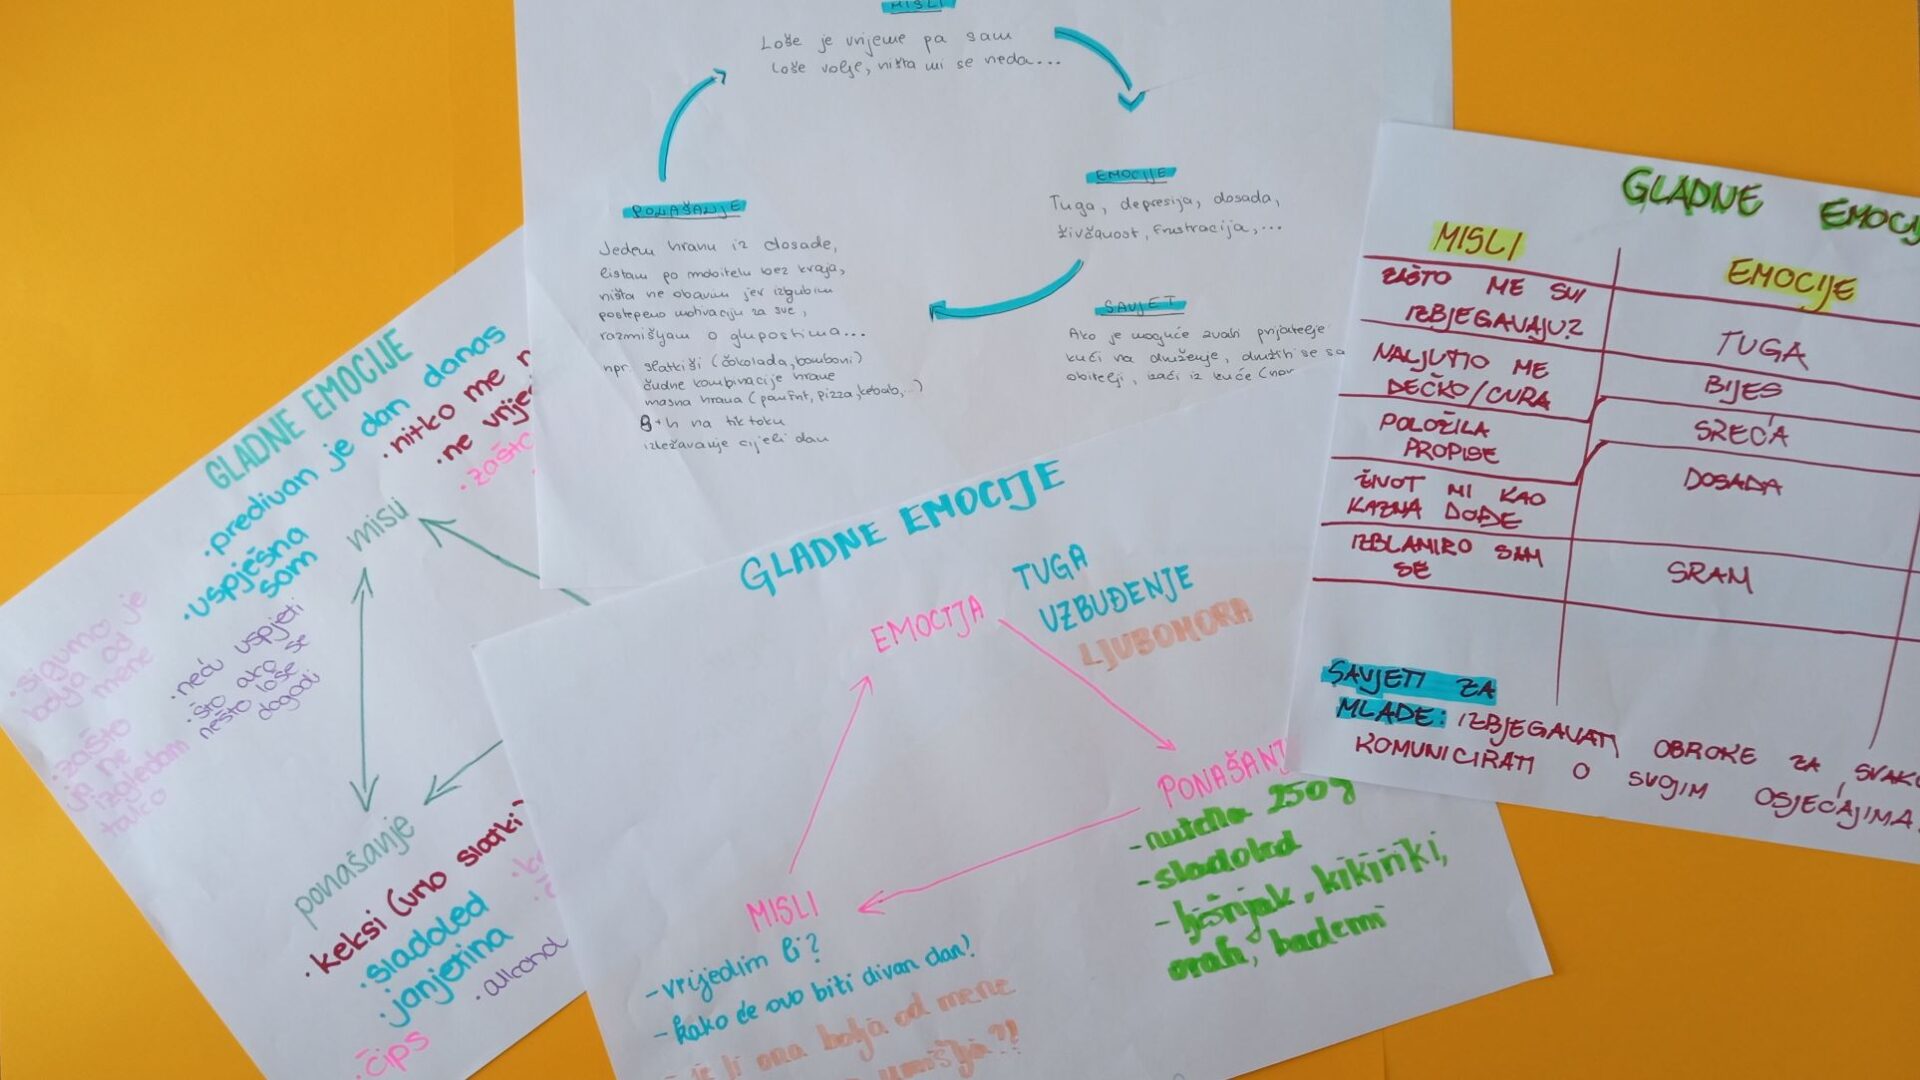 MISLI
Loše je vrijeme pa sam
loše volje, ništa mi se neda...
EMOCIJE
Tuga, depresija, dosada,
živčanost, frustracija,...
PONAŠANJE
Jedem hranu iz dosade,
listam po mobitelu bez kraja,
ništa ne obavim jer izgubim
postepeno motivaciju za sve,
razmišljam o glupostima...
npr. slatkiši (čokolada, bomboni)
čudne kombinacije hrane
masna hrana (pomfrit, pizza, kebab,...)
8+h na tik toku
izležavanje cijeli dan
SAVJET
Ako je moguće zvati prijatelje
kući na druženje, družiti se sa
obitelji, izaći iz kuće (npr
GLADNE EMOCIJE
MISLI
EMOCIJE
ZAŠTO ME SVI
IZBJEGAVAJU?
TUGA
NALJUTIO ME
DEČKO/CURA
BIJES
POLOŽILA
PROPISE
SREĆA
ŽIVOT MI KAO
KAZNA DOĐE
DOSADA
IZBLAMIRO SAM
SE
SRAM
SAVJETI ZA
MLADE: IZBJEGAVATI OBROKE ZA SVAKO
KOMUNICIRATI O SVOJIM OSJEĆAJIMA
GLADNE EMOCIJE
• predivan je dan danas
• uspješna
sam
• nitko me
• ne vrije
• zašto
misli
• neću uspjeti
• što ako se
nešto loše
dogodi
• sigurno je
bolja od
mene
• zašto
ja ne
izgledam
tako
ponašanje
• keksi (umo slatki)
• sladoled
• janjetina
• alkohol
• čips
GLADNE EMOCIJE
EMOCIJA
TUGA
UZBUĐENJE
LJUBOMORA
PONAŠANJ
- nutella 250g
- sladoled
- lješnjak, kikiriki,
orah, bademi
MISLI
- vrijedim li?
- kako će ovo biti divan dan!
- je li ona bolja od mene
umišlja?!